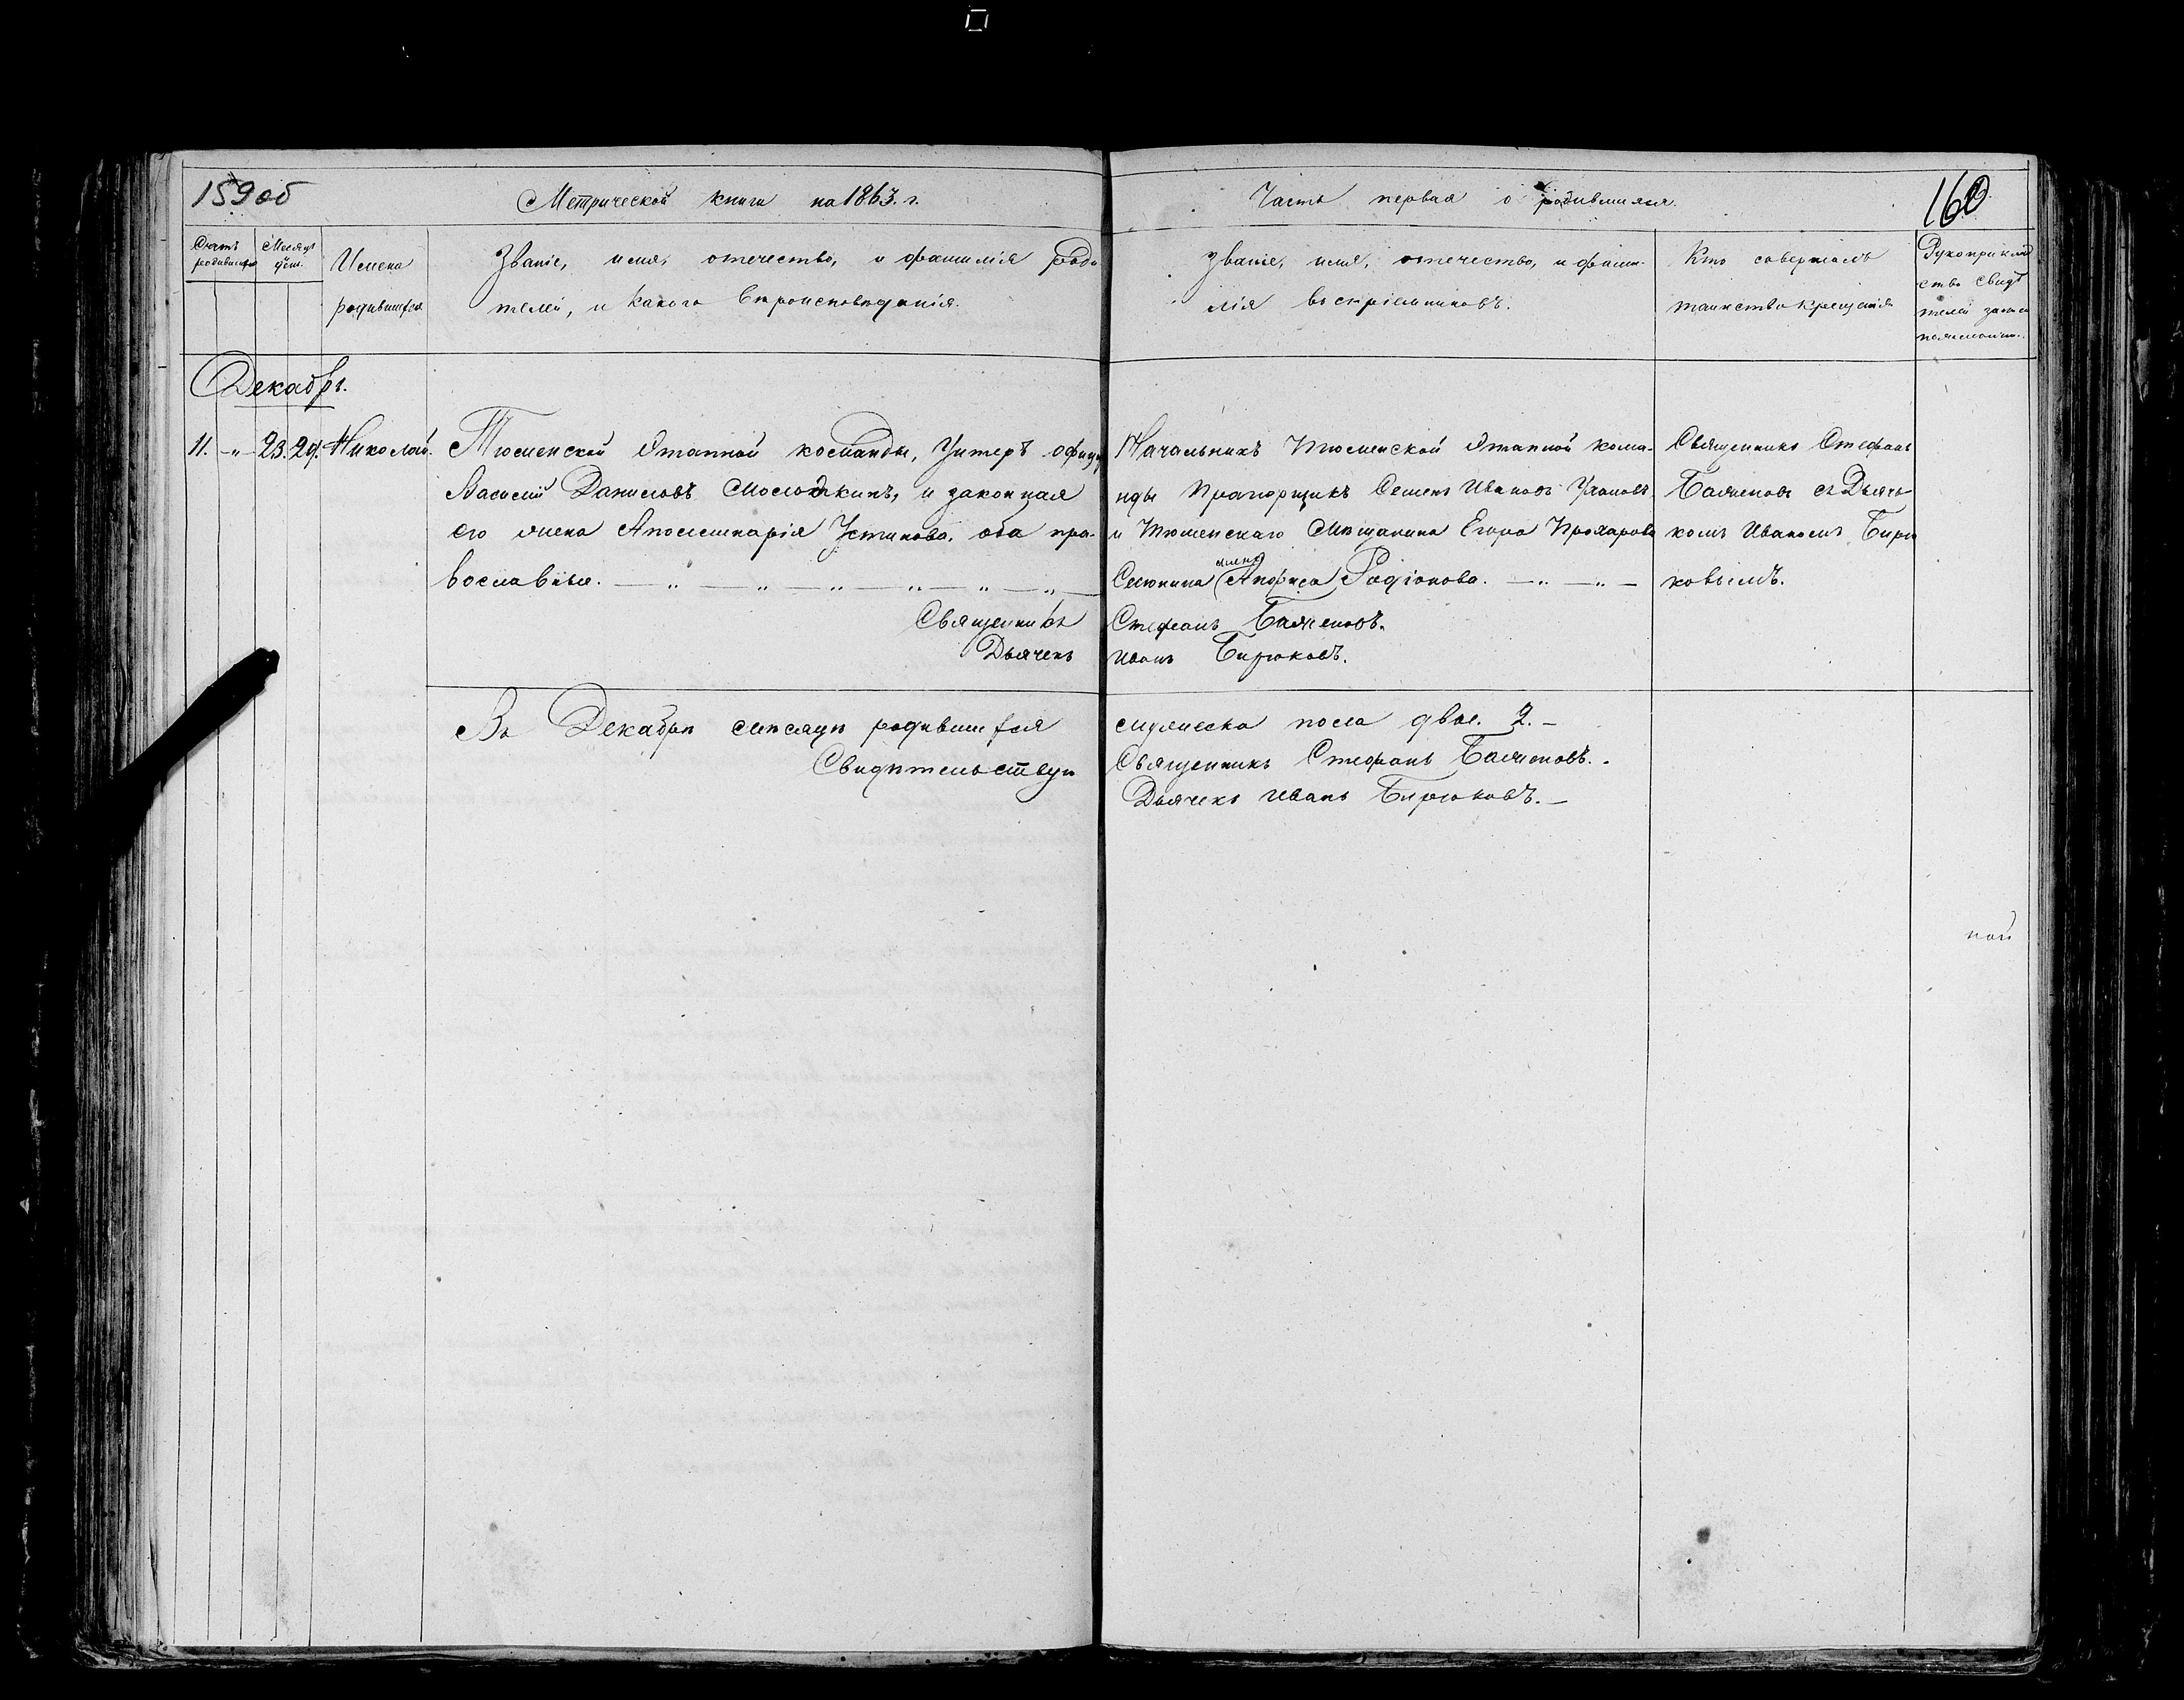 159 об
Метрической книги на 1863. г.
Часть первая о родившихся.
160
Счетъ родившихся
Месяцъ день.
Имена
родившихся
Званіе, имя, отечество, и фамилія роди-
телей, и какого вѣроисповѣданія.
Званіе, имя, отечество, и фами-
лія воспріемниковъ.
Кто совершалъ
таинство крещенія
Рукоприклад
ство свидѣ
телей записи
Декабрь.
11. -"- 23. 29. Николай.
Тюменской Этапной команды, Унтеръ офицеръ
Василій Даниловъ Молодкинъ, и законная
его жена Аполлинарія Устинова. оба пра-
вославные. — " — " — " — " — " — " —
Священникъ
Дьячекъ
Начальникъ Тюменской Этапной кома-
нды Прапорщикъ Семенъ Ивановъ
и Тюменскаго Мѣщанина Егора Прохарова
жена
Анфиса Родіонова. — " — " —
Стефанъ Баженовъ.
Иванъ Бирюковъ.
Священникъ Стефанъ
Баженовъ съ Дьяч-
комъ Иваномъ Бирю
ковымъ.
Въ Декабрѣ мѣсяцѣ родившихся
Свидѣтельствую
мужеска пола двое. 2. —
Священникъ Стефанъ Баженовъ. -
Дьячекъ Иванъ Бирюковъ. —